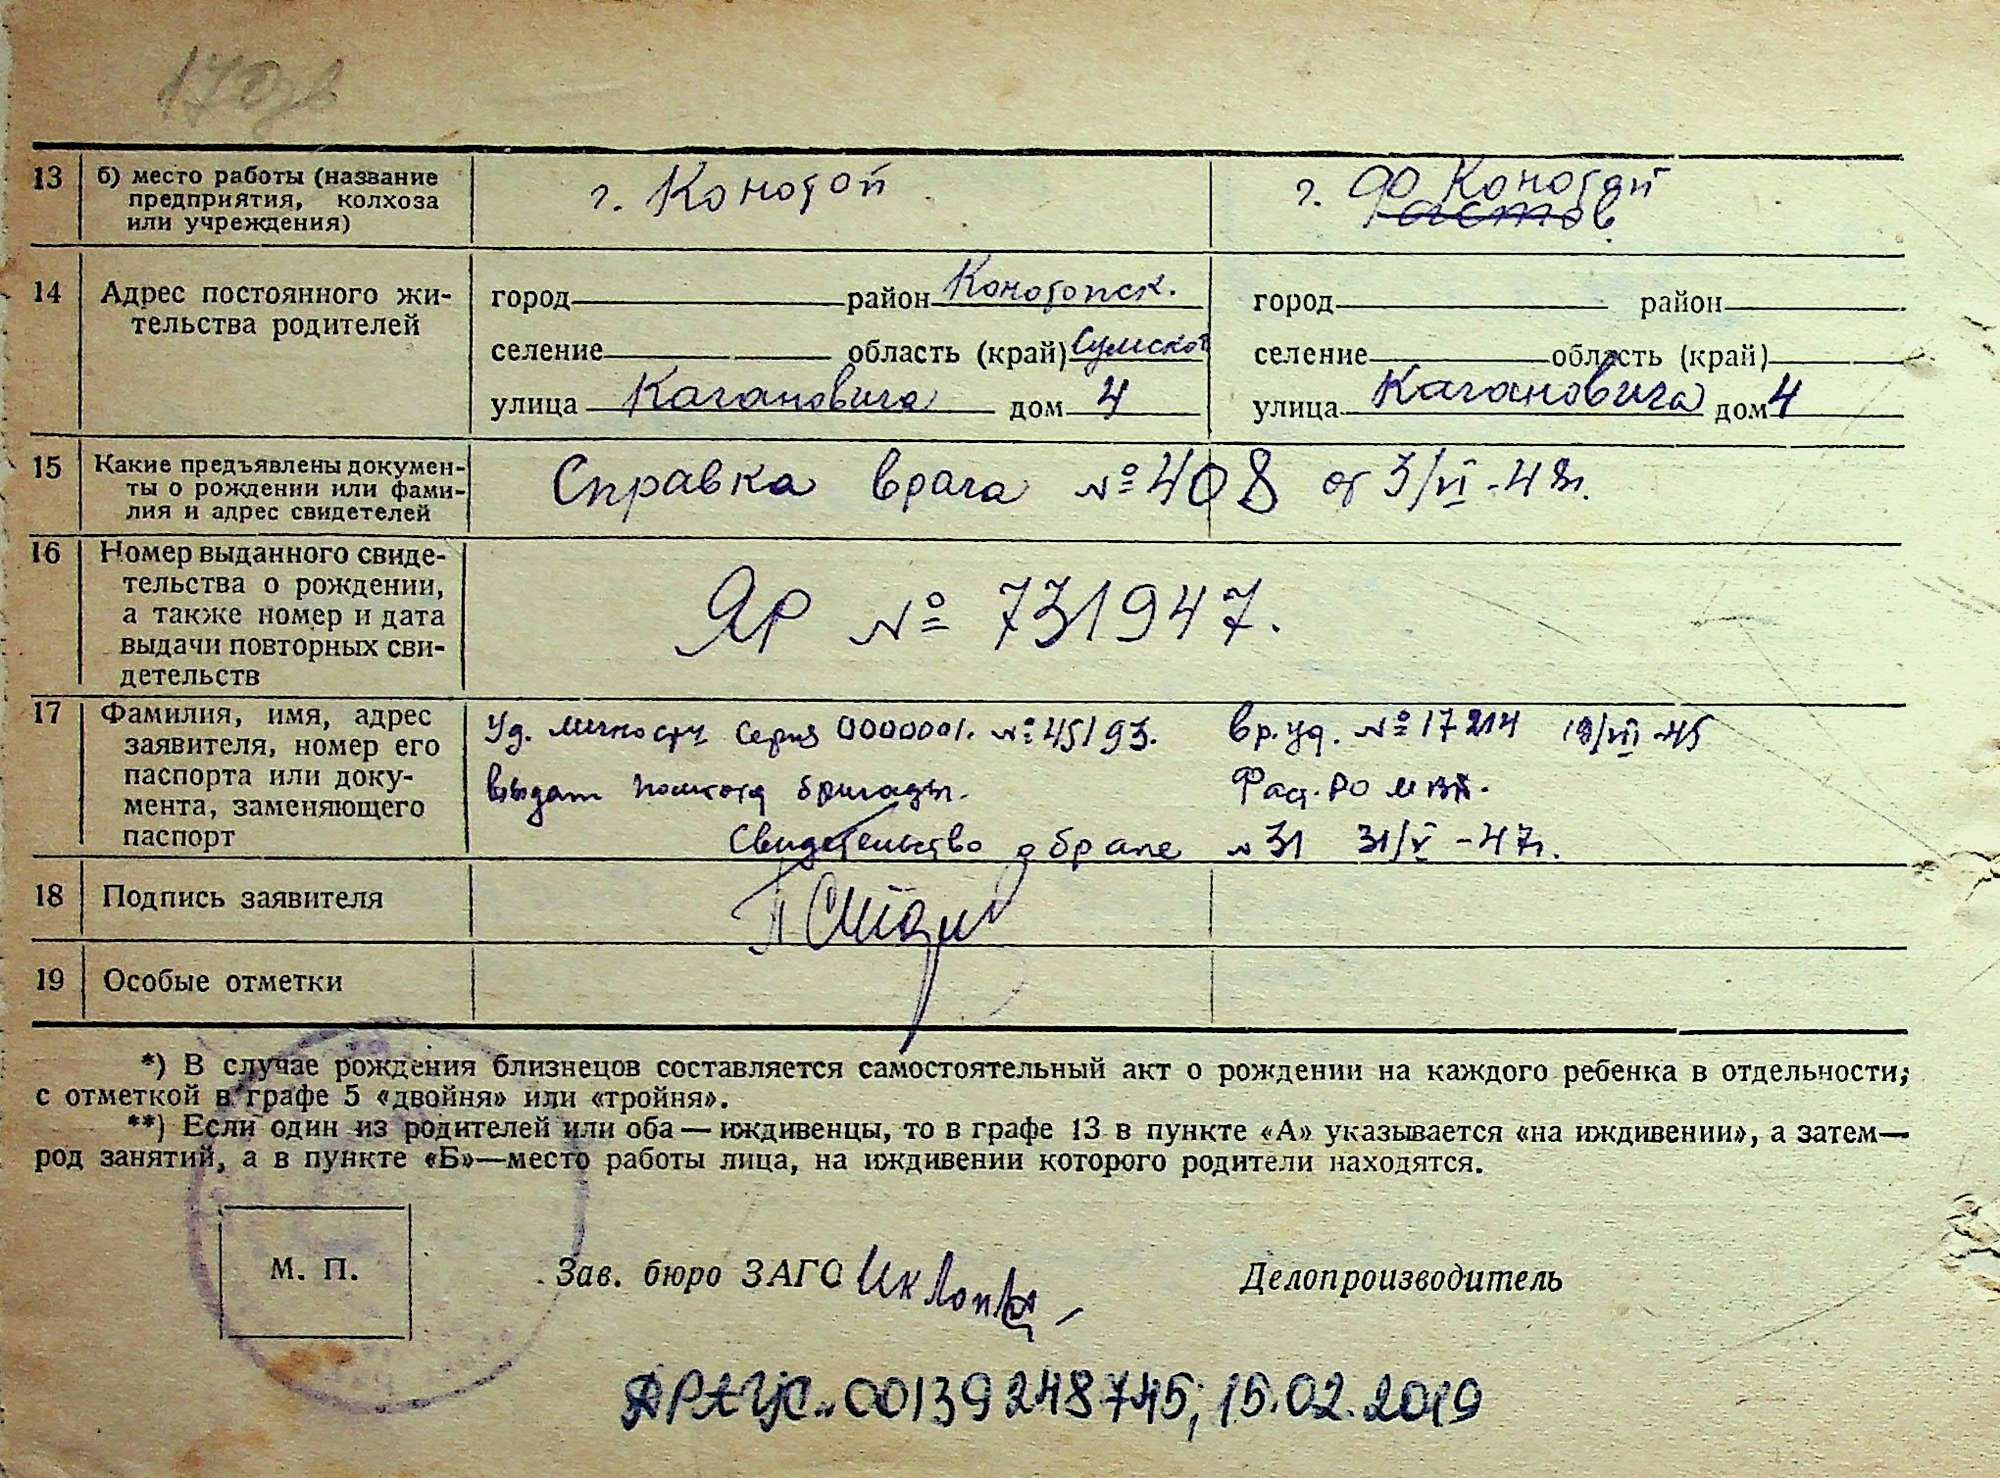 13 б) место работы (название г. Конотоп г. Конотоп
предприятия, колхоза Фастов
или учреждения)
14 Адрес постоянного жи- город район Конотопск. город район
тельства родителей селение область (край) Сумской селение область (край)
улица Кагановича дом 4 улица Кагановича дом 4
15 Какие предъявлены докумен- Справка врача № 408 от 3/VI-48г.
ты о рождении или фами-
лия и адрес свидетелей
16 Номер выданного свиде-
тельства о рождении,
а также номер и дата ЯР № 731947.
выдачи повторных сви-
детельств
17 Фамилия, имя, адрес Уд. личности серия 0000001. № 45193. вр. уд. № 17214 19/VII-45
заявителя, номер его
паспорта или доку- выдан бригады. Фас. РО
мента, заменяющего
паспорт Свидетельство о браке № 31 31/V-47г.
18 Подпись заявителя
19 Особые отметки
*) В случае рождения близнецов составляется самостоятельный акт о рождении на каждого ребенка в отдельности,
с отметкой в графе 5 «двойня» или «тройня».
**) Если один из родителей или оба — иждивенцы, то в графе 13 в пункте «А» указывается «на иждивении», а затем—
род занятий, а в пункте «Б»—место работы лица, на иждивении которого родители находятся.
М. П. Зав. бюро ЗАГС Делопроизводитель
ДРАЦС. 00139248745; 15.02.2019